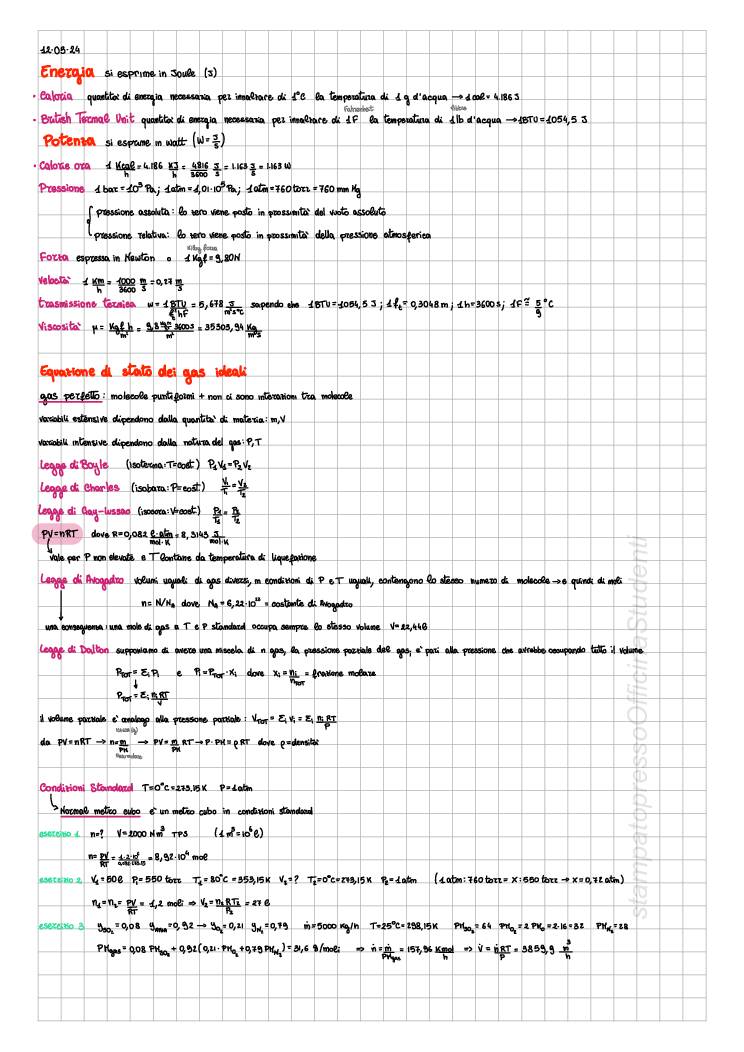 12.03.24
Energia si esprime in Joule (J)
• Caloria quantità di energia necessaria per innalzare di 1°C la temperatura di 1 g d'acqua → 1 cal = 4.186 J
Fahrenheit libbra
• British Termal Unit quantità di energia necessaria per innalzare di 1F la temperatura di 1 lb d'acqua → 1BTU = 1054,5 J
Potenza si esprime in Watt (W = J/s)
• Calorie ora 1 Kcal/h = 4.186 KJ/h = 4816/3600 J/s = 1.163 J/s = 1.163 W
Pressione 1 bar = 10⁵ Pa; 1 atm = 1,01·10⁵ Pa; 1 atm = 760 torr = 760 mm Hg
pressione assoluta: lo zero viene posto in prossimità del vuoto assoluto
pressione relativa: lo zero viene posto in prossimità della pressione atmosferica
Forza espressa in Newton o 1 Kgf = 9,80N
Velocità 1 Km/h = 1000/3600 m/s = 0,27 m/s
trasmissione termica w = 1 BTU/ft² hF = 5,678 J/m²s°C sapendo che 1BTU = 1054,5 J; 1ft = 0,3048 m; 1h = 3600s; 1F ≅ 5/9 °C
Viscosità μ = Kgf h/m² = 35303,94 Kg/m s
Equazione di stato dei gas ideali
gas perfetto: molecole puntiformi + non ci sono interazioni tra molecole
variabili estensive dipendono dalla quantità di materia: m, V
variabili intensive dipendono dalla natura del gas: P, T
Legge di Boyle (isoterma: T=cost) P₁V₁ = P₂V₂
Legge di Charles (isobara: P=cost) V₁/T₁ = V₂/T₂
Legge di Gay-Lussac (isocora: V=cost) P₁/T₁ = P₂/T₂
PV=nRT dove R=0,082 l·atm/mol·K = 8,3145 J/mol·K
vale per P non elevate e T lontane da temperatura di liquefazione
Legge di Avogadro volumi uguali di gas diversi, in condizioni di P e T uguali, contengono lo stesso numero di molecole → e quindi di moli
n = N/Nₐ dove Nₐ = 6,22·10²³ = costante di Avogadro
una conseguenza: una mole di gas a T e P standard occupa sempre lo stesso volume V=22,414l
Legge di Dalton supponiamo di avere una miscela di n gas, la pressione parziale del gas, è pari alla pressione che avrebbe occupando tutto il volume
P_TOT = Σᵢ Pᵢ e Pᵢ = P_TOT · xᵢ dove xᵢ = nᵢ/n_TOT = frazione molare
P_TOT = Σᵢ nᵢRT/V
il volume parziale è analogo alla pressione parziale: V_TOT = Σᵢ vᵢ = Σᵢ nᵢRT/P
da PV=nRT → n=m/PM → PV = m/PM RT → P·PM = ρRT dove ρ=densità
Condizioni Standard T=0°C=273,15K P=1atm
Normal metro cubo è un metro cubo in condizioni standard
esercizio 1 n=? V=2000 Nm³ TPS (1m³=10³l)
n = PV/RT = 8,92·10⁴ mol
esercizio 2 V₁=50l P₁=550 torr T₁=80°C=353,15K V₂=? T₂=0°C=273,15K P₂=1atm (1atm:760 torr = X:550 torr → X=0,72atm)
n₁=n₂= PV/RT = 1,2 moli ⇒ V₂= n₂RT₂/P₂ = 27 l
esercizio 3 y_SO₂=0,08 y_aria=0,92 → y_O₂=0,21 y_N₂=0,79 ṁ=5000 Kg/h T=25°C=298,15K PM_SO₂=64 PM_O₂=2PM_O=2·16=32 PM_N₂=28
PM_gas = 0,08 PM_SO₂ + 0,92(0,21·PM_O₂+0,79 PM_N₂) = 31,6 g/moli ⇒ ṅ = ṁ/PM_gas = 157,96 Kmol/h ⇒ V̇ = ṅRT/P = 3859,9 m³/h
stampatopressoOfficinaStudenti